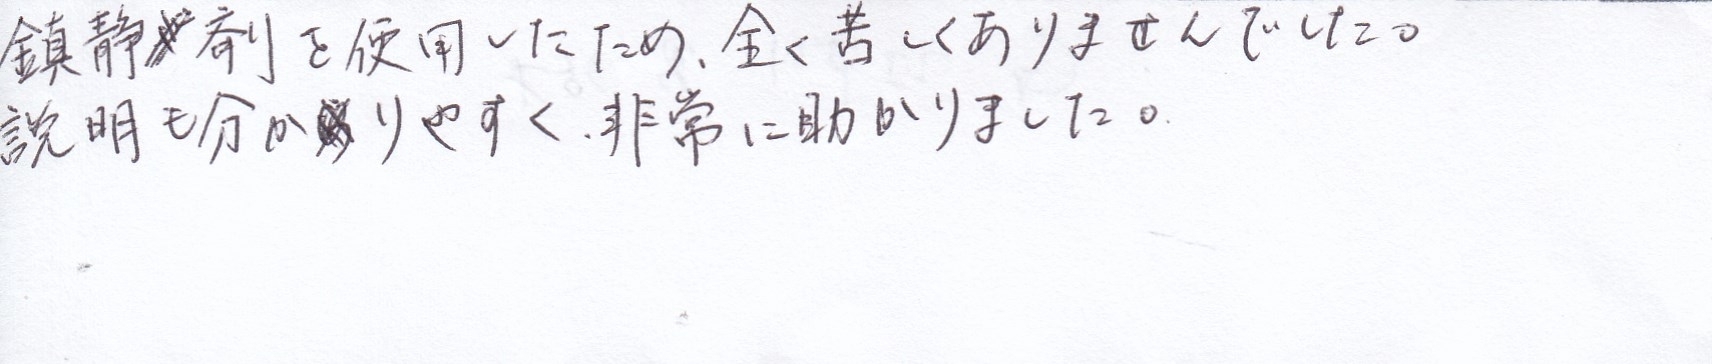 鎮静剤を使用したため、全く苦しくありませんでした。
説明も分かりやすく、非常に助かりました。